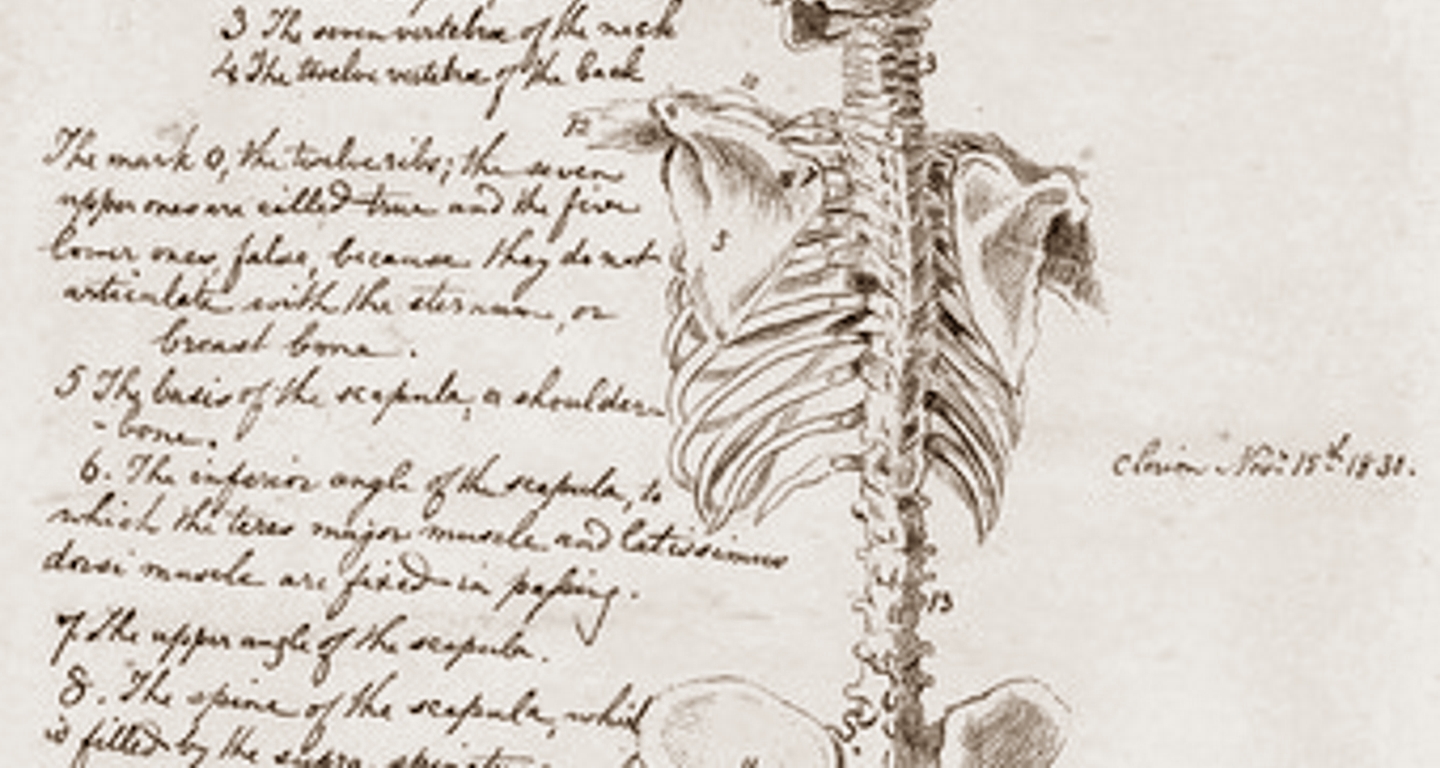 3 The seven vertebræ of the neck
4 The twelve vertebræ of the back
The mark 0, the twelve ribs; the seven
upper ones are called true and the five
lower ones, false, because they do not
articulate with the sternum, or
breast bone.
5 The basis of the scapula, or shoulder-
-bone.
6. The inferior angle of the scapula, to
which the teres major muscle and latissimus
dorsi muscle are fixed in passing.
7. The upper angle of the scapula.
8. The spine of the scapula, which
is filled by the supra spinatus
11
3
12
7
5
Nov: 15th 1831.
13